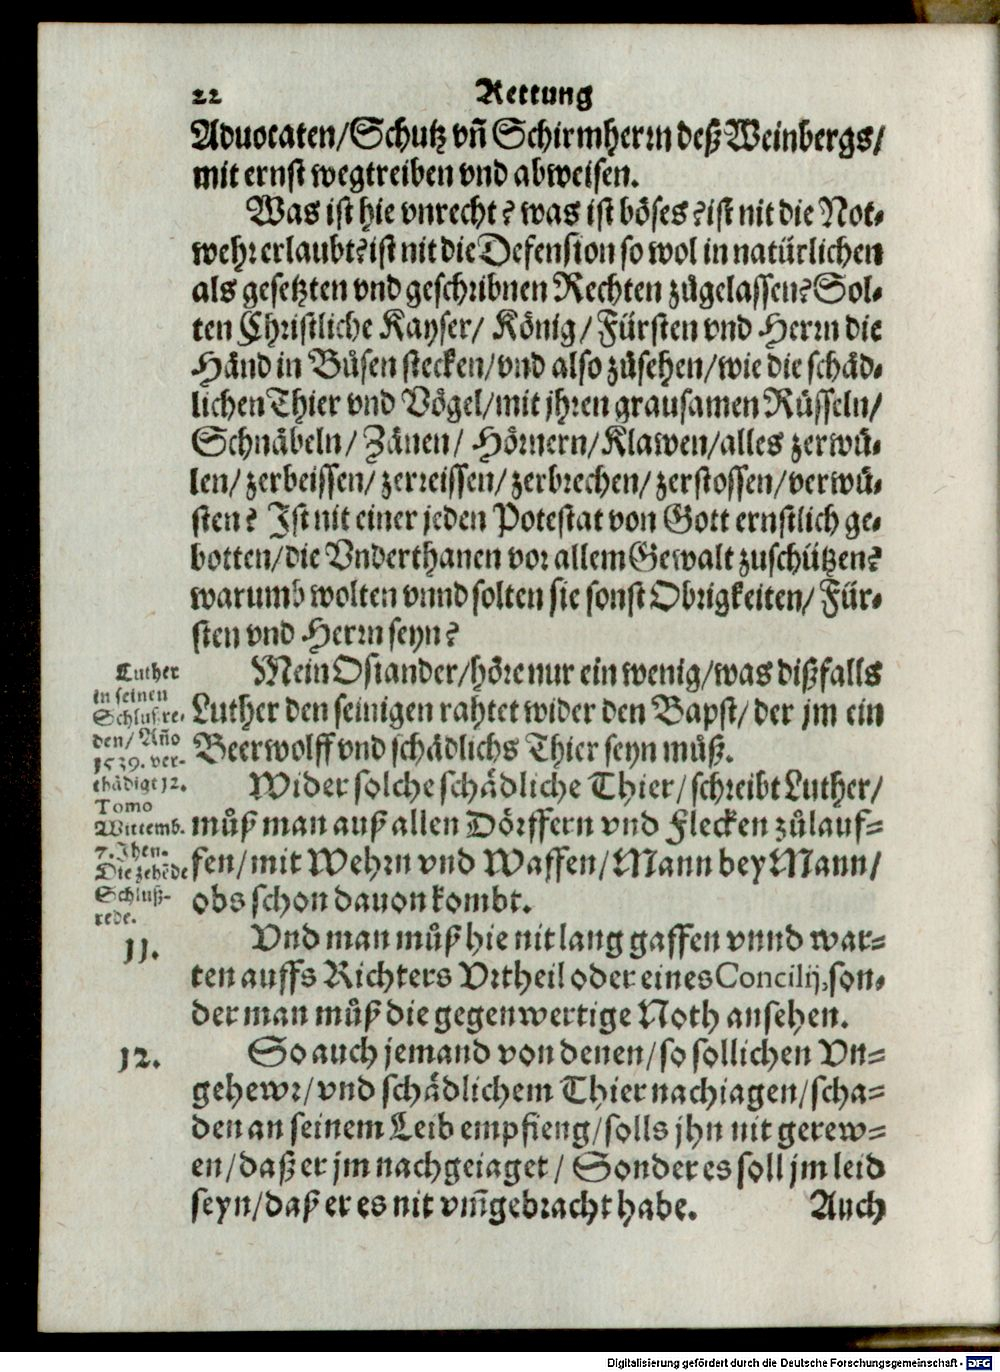 22 Rettung
Aduocaten/Schutz vñ Schirmherrn deß Weinbergs/
mit ernst wegtreiben vnd abweisen.
Was ist hie vnrecht? was ist böses? ist nit die Not-
wehr erlaubt? ist nit die Defension so wol in natürlichen
als gesetzten vnd geschribnen Rechten zůgelassen? Sol-
ten Christliche Kayser/ König/ Fürsten vnd Herrn die
Händ in Bůsen stecken/vnd also zůsehen/wie die schäd-
lichen Thier vnd Vögel/mit jhren grausamen Rüsseln/
Schnäbeln/ Zänen/ Hörnern/Klawen/alles zerwů-
len/ zerbeissen/ zerreissen/ zerbrechen/ zerstossen/verwů-
sten? Ist nit einer jeden Potestat von Gott ernstlich ge-
botten/die Vnderthanen vor allem Gewalt zuschützen?
warumb wolten vnnd solten sie sonst Obrigkeiten/ Für-
sten vnd Herrn seyn?
Mein Osiander/höre nur ein wenig/was dißfalls
Luther den seinigen rahtet wider den Bapst/ der jm ein
Beerwolff vnd schädlichs Thier seyn můß.
Luther
in seinen
Schlußre-
den/ Año
1539. ver-
thädigt 12.
Tomo
Wittemb.
7. Jhen.
Die zehẽde
Schluß-
rede.
Wider solche schädliche Thier/ schreibt Luther/
můß man auß allen Dörffern vnd Flecken zůlauf-
fen/mit Wehrn vnd Waffen/Mann bey Mann/
obs schon dauon kombt.
11.
Vnd man můß hie nit lang gaffen vnnd war-
ten auffs Richters Vrtheil oder eines Concilij, son-
der man můß die gegenwertige Noth ansehen.
12.
So auch jemand von denen/so sollichen Vn-
gehewr/vnd schädlichem Thier nachjagen/scha-
den an seinem Leib empfieng/solls jhn nit gerew-
en/daß er jm nachgejaget/ Sonder es soll jm leid
seyn/daß er es nit vm̃gebracht habe. Auch
Digitalisierung gefördert durch die Deutsche Forschungsgemeinschaft - DFG